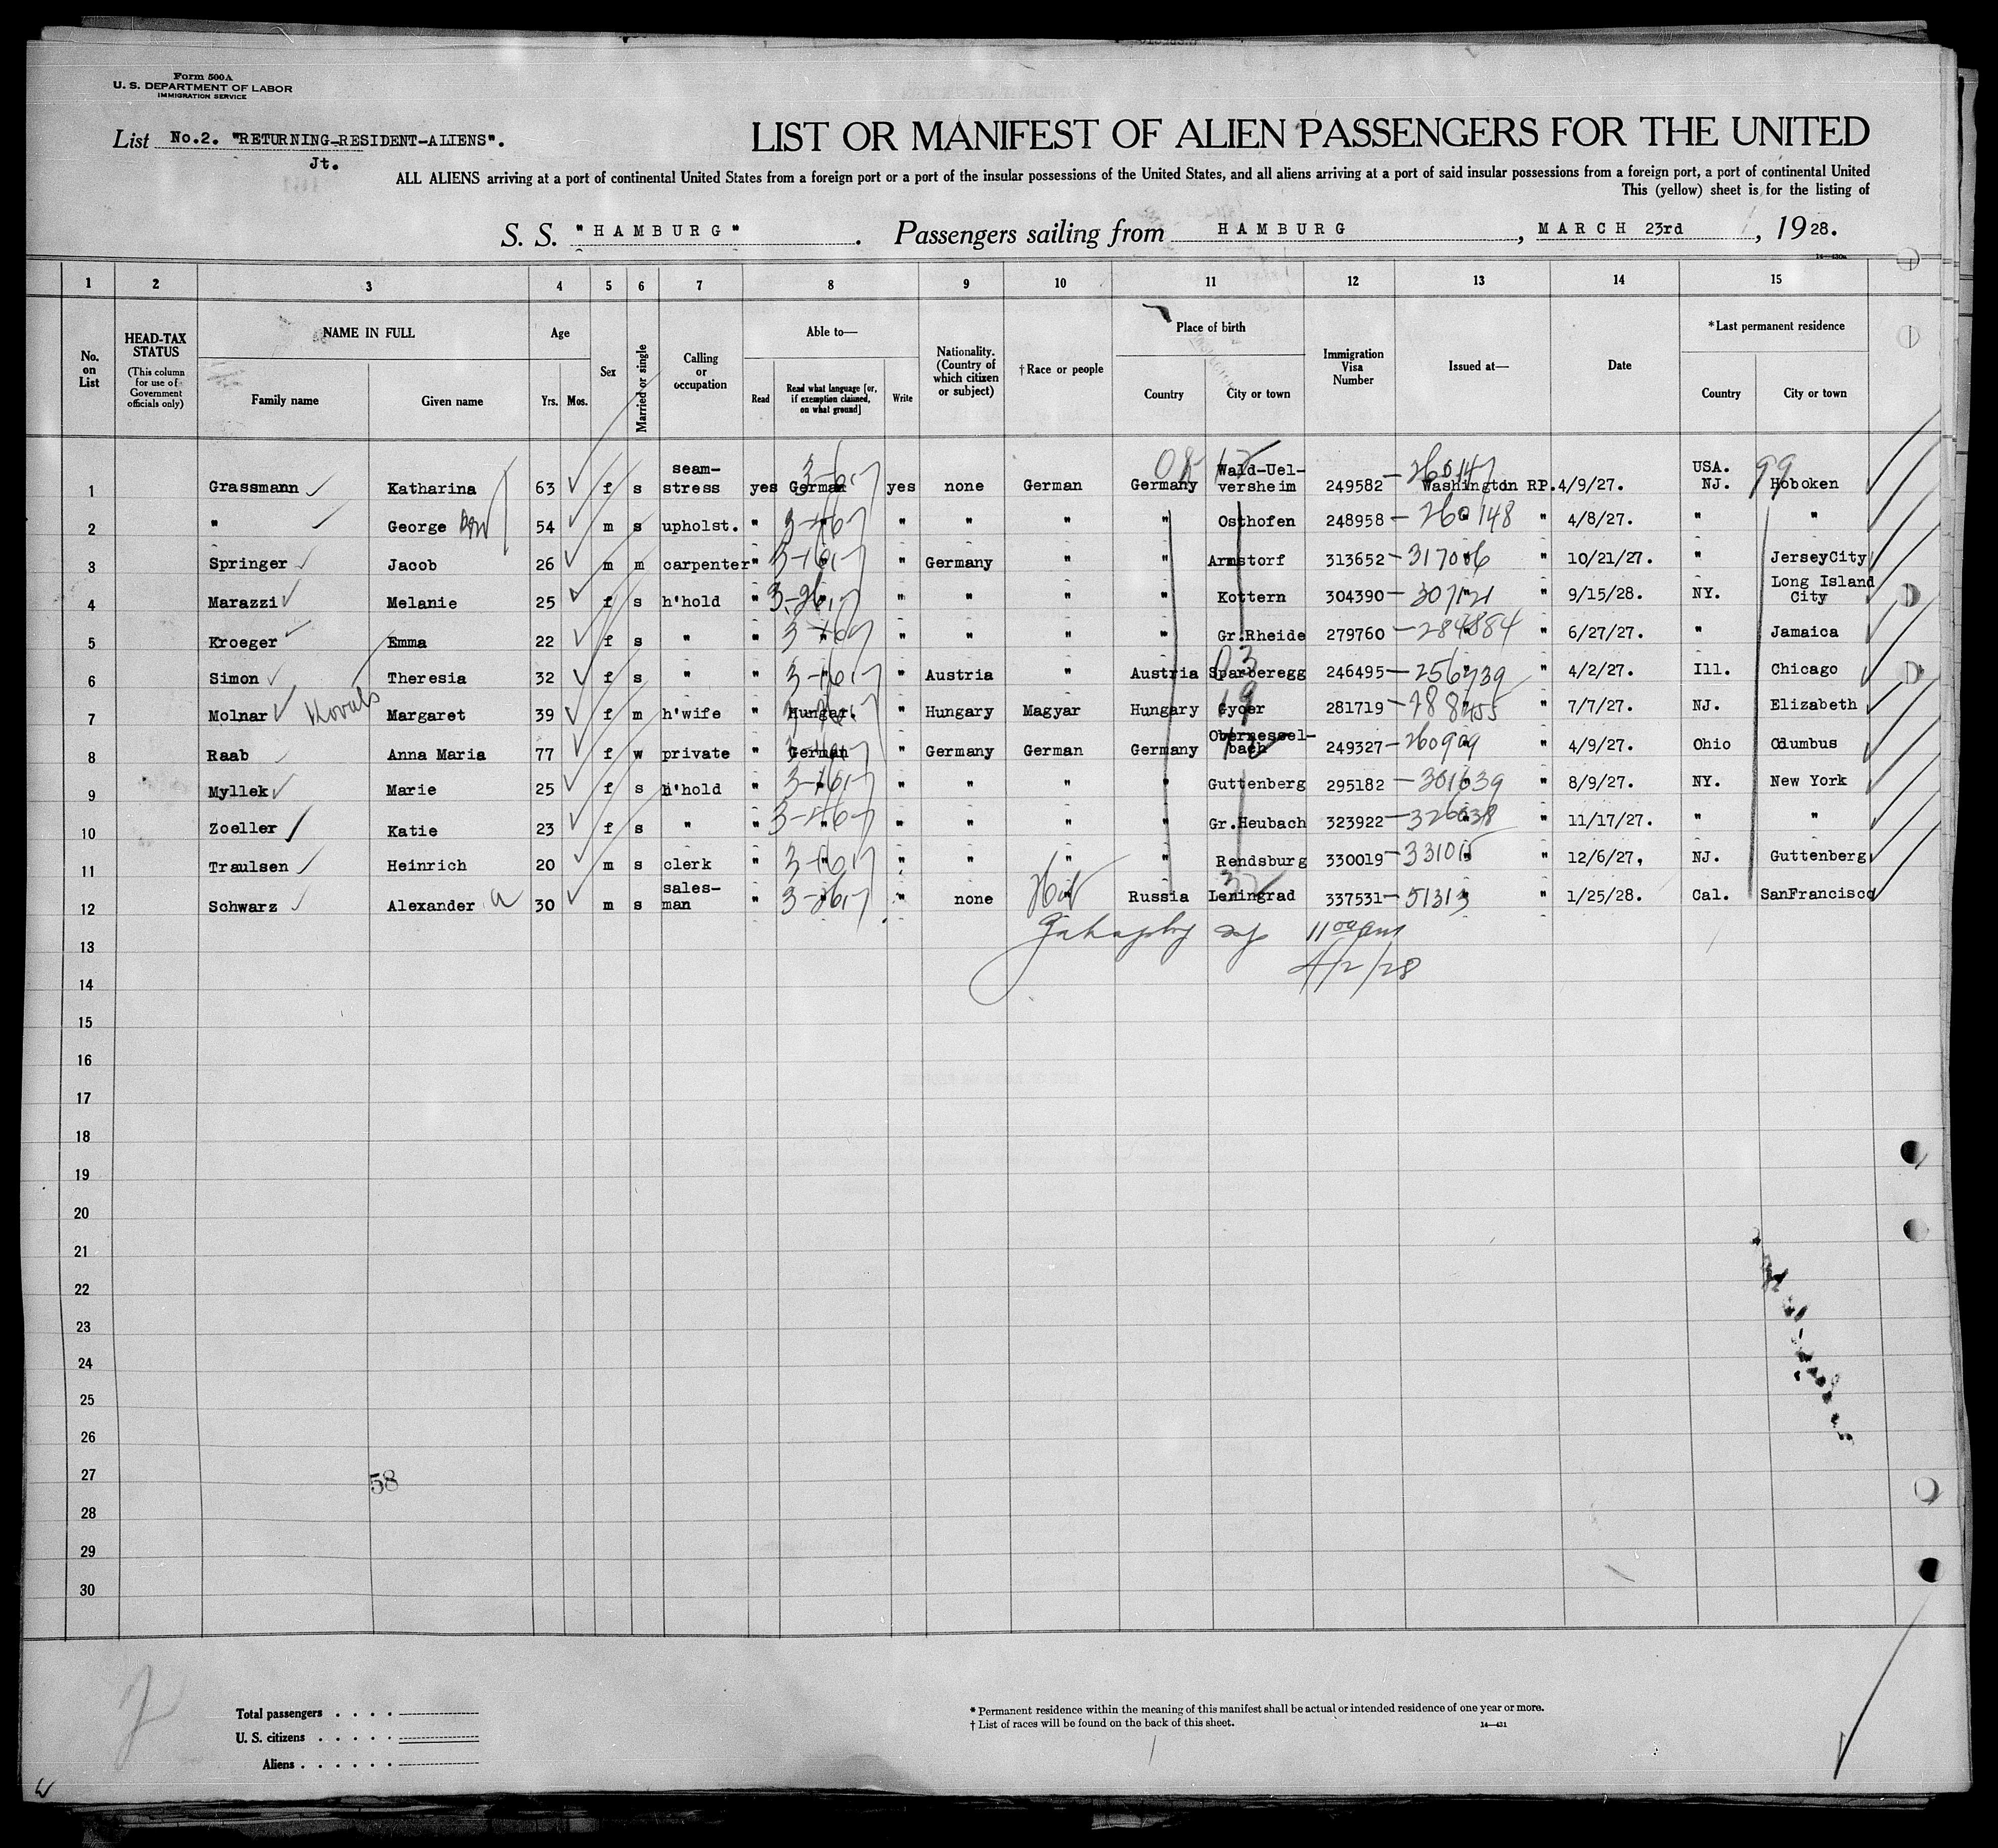 Form 500A
U. S. DEPARTMENT OF LABOR
IMMIGRATION SERVICE
List No.2. "RETURNING-RESIDENT-ALIENS".
Jt.
LIST OR MANIFEST OF ALIEN PASSENGERS FOR THE UNITED
ALL ALIENS arriving at a port of continental United States from a foreign port or a port of the insular possessions of the United States, and all aliens arriving at a port of said insular possessions from a foreign port, a port of continental United
This (yellow) sheet is for the listing of
S. S. "HAMBURG". Passengers sailing from HAMBURG, MARCH 23rd, 1928.
1 2 3 4 5 6 7 8 9 10 11 12 13 14 15
No. on List
HEAD-TAX STATUS (This column for use of Government officials only)
NAME IN FULL Family name Given name
Age Yrs. Mos.
Sex
Married or single
Calling or occupation
Able to— Read Read what language [or, if exemption claimed, on what ground] Write
Nationality. (Country of which citizen or subject)
†Race or people
Place of birth Country City or town
Immigration Visa Number
Issued at—
Date
*Last permanent residence Country City or town
1 Grassmann Katharina 63 f s seam-stress yes German yes none German Germany Wald-Uel-versheim 249582 — 260147 Washington RP. 4/9/27. USA. NJ. 99 Hoboken
2 " George 54 m s upholst. " " " " " " Osthofen 248958 — 260148 " " 4/8/27. " "
3 Springer Jacob 26 m m carpenter " " " Germany " " Armstorf 313652 — 317006 " " 10/21/27. " JerseyCity
4 Marazzi Melanie 25 f s h'hold " " " " " " Kottern 304390 — " " 9/15/28. NY. Long Island City
5 Kroeger Emma 22 f s " " " " " " " Gr.Rheide 279760 — 284884 " " 6/27/27. " Jamaica
6 Simon Theresia 32 f s " " " " Austria " Austria Sparberegg 246495 — 256739 " " 4/2/27. Ill. Chicago
7 Molnar Kovals Margaret 39 f m h'wife " Hungar. " Hungary Magyar Hungary Gyoer 281719 — 288455 " " 7/7/27. NJ. Elizabeth
8 Raab Anna Maria 77 f w private " German " Germany German Germany Obernessel-bach 249327 — 260909 " " 4/9/27. Ohio Columbus
9 Myllek Marie 25 f s h'hold " " " " " " Guttenberg 295182 — 301639 " " 8/9/27. NY. New York
10 Zoeller Katie 23 f s " " " " " " " Gr.Heubach 323922 — 326038 " " 11/17/27. " "
11 Traulsen Heinrich 20 m s clerk " " " " " " Rendsburg 330019 — " " 12/6/27, NJ. Guttenberg
12 Schwarz Alexander 30 m s sales-man " " " none Russia Leningrad 337531 — 51313 " 1/25/28. Cal. SanFrancisco
13 11 00 am
14 4/2/28
15
16
17
18
19
20
21
22
23
24
25
26
27 58
28
29
30
Total passengers
U. S. citizens
Aliens
* Permanent residence within the meaning of this manifest shall be actual or intended residence of one year or more.
† List of races will be found on the back of this sheet. 14—431